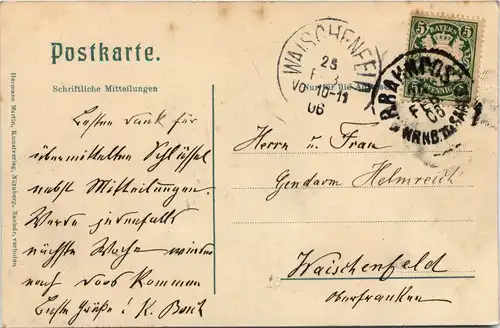 Postkarte.
Schriftliche Mitteilungen
Nur für die
Hermann Martin, Kunstverlag, Nürnberg. Nachdr. verboten
WAISCHENFEL
23
FEB
Vo 10-11
06
5 BAYERN 5
PFENNIG
BAHNPOST
FEB
06
NRNB.
Besten Dank für
übermittelten Schlüssel
nebst Mitteilungen.
Werde jedenfalls
nächste Woche wieder
nach Koos kommen
Beste Grüße! K.
Herrn u. Frau
Gendarm Helmreich
Waischenfeld
Oberfranken